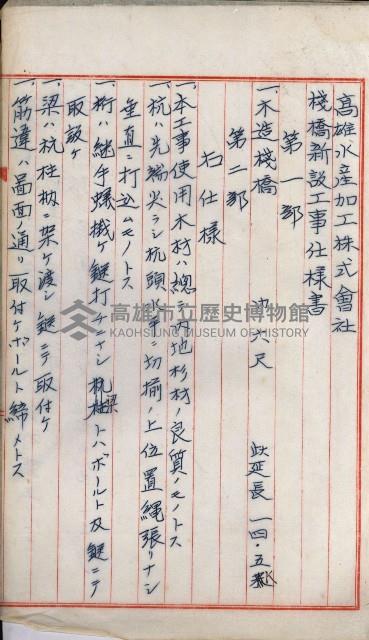 高雄水産加工株式會社
棧橋新設工事仕様書
第一部
一、木造棧橋 巾六尺 此延長 一四・五
第二部
仕様
一、本工事使用木材ハ總テ内地杉材ノ良質ノモノトス
一、杭ハ先端尖ラシ杭頭水平ニ切揃ノ上位置縄張リナシ
垂直ニ打込ムモノトス
一、桁ハ継手螺掛ケ鎹打チニナシ杭梁トハボールト及鎹ニテ
取設ケ
一、梁ハ杭柱枘ニ架ケ渡シ鎹ニテ取付ケ
一、筋違ハ圖面ノ通リ取付ケボールト締メトス
高雄市立歷史博物館
KAOHSIUNG MUSEUM OF HISTORY